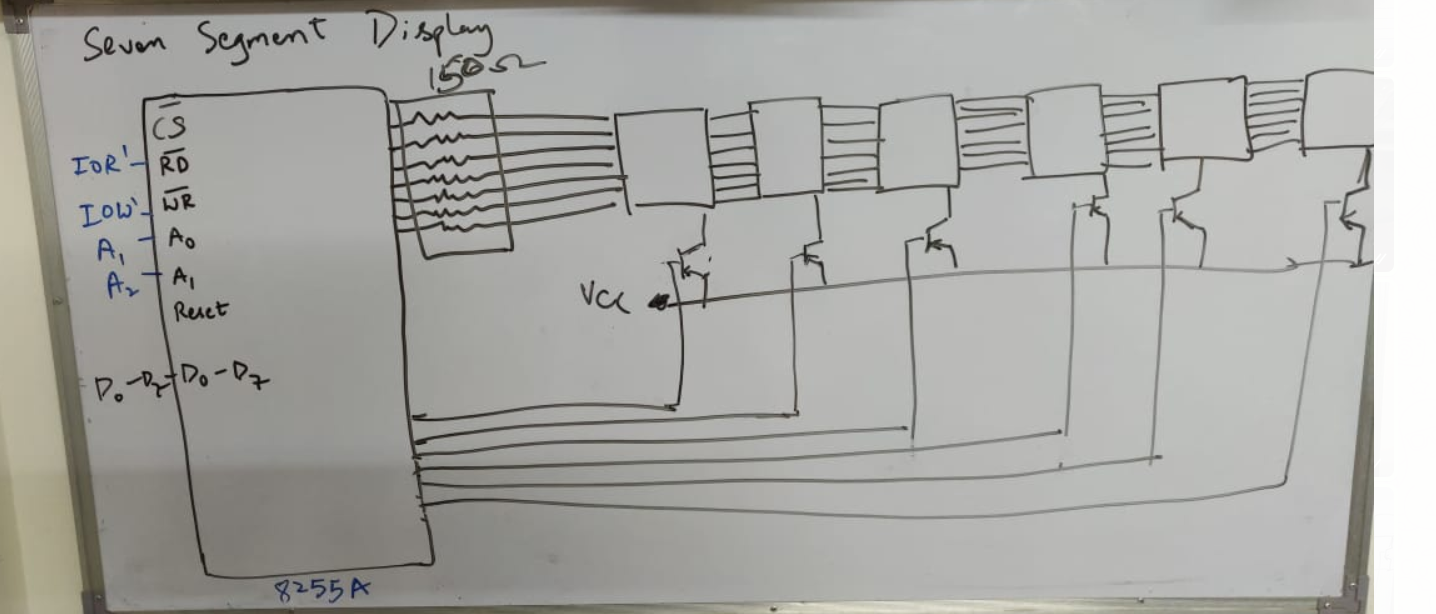 Seven Segment Display
150Ω
CS
IOR' RD
IOW' WR
A1 A0
A2 A1
Reset
D0-D7 D0-D7
VCC
8255A